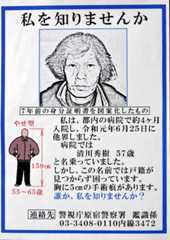 私を知りませんか
7年前の身分証明書を図案化したもの
やせ型
159cm
55～65歳
私は、都内の病院で約4ヶ月
入院し、令和元年6月25日に
他界しました。
病院では
清川秀樹 57歳
と名乗っていました。
しかし、この名前では戸籍が
見つからず困っています。
胸に5cmの手術痕があります。
誰か、私を知りませんか？
連絡先
警視庁原宿警察署 鑑識係
03-3408-0110内線3472